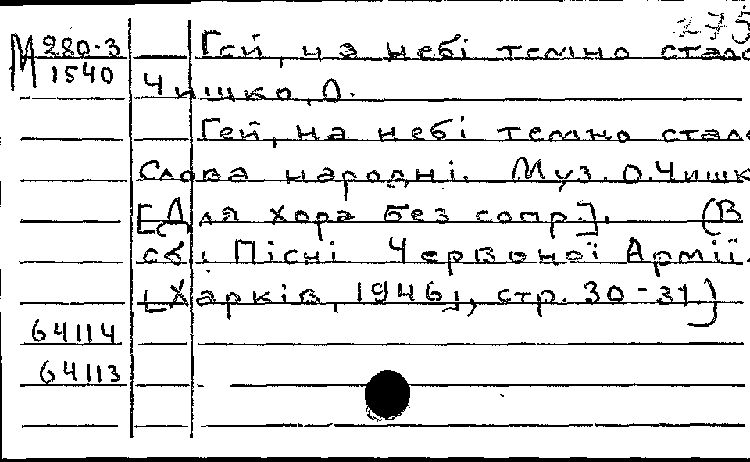 275
М 280-3
1540
Гей, на небі темно стало
Чишко, О.
Гей, на небі темно стало
Слова народні. Муз. О. Чишк
[Для хора без сопр.]. (В
сб.: Пісні Червоної Армії.
[Харків, 1946], стр. 30-31)
64114
64113